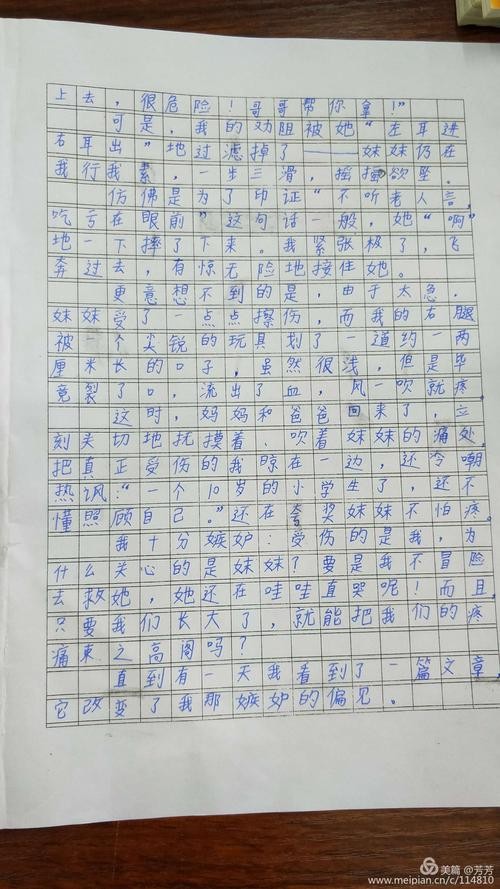 上去，很危险！哥哥帮你拿！”
可是，我的劝阻被她“左耳进
右耳出”地过滤掉了——妹妹仍在
我行我素，一步三滑，摇摇欲坠。
仿佛是为了印证“不听老人言，
吃亏在眼前”这句话一般，她“啊”
地一下摔了下来。我紧张极了，飞
奔过去，有惊无险地接住她。
更意想不到的是，由于太急，
妹妹受了一点点擦伤，而我的右腿
被一个尖锐的玩具划了一道约一两
厘米长的口子，虽然很浅，但是毕
竟裂了口，流出了血，风一吹就疼。
这时，妈妈和爸爸回来了，立
刻关切地抚摸着、吹着妹妹的痛处，
把真正受伤的我晾在一边，还冷嘲
热讽：“一个10岁的小学生了，还不
懂照顾自己。”还在夸奖妹妹不怕疼。
我十分嫉妒：受伤的是我，为
什么关心的是妹妹？要是我不冒险
去救她，她还在哇哇直哭呢！而且，
只要我们长大了，就能把我们的疼
痛束之高阁吗？
直到有一天我看到了一篇文章，
它改变了我那嫉妒的偏见。
美篇 @芳芳
www.meipian.cn/c/114810